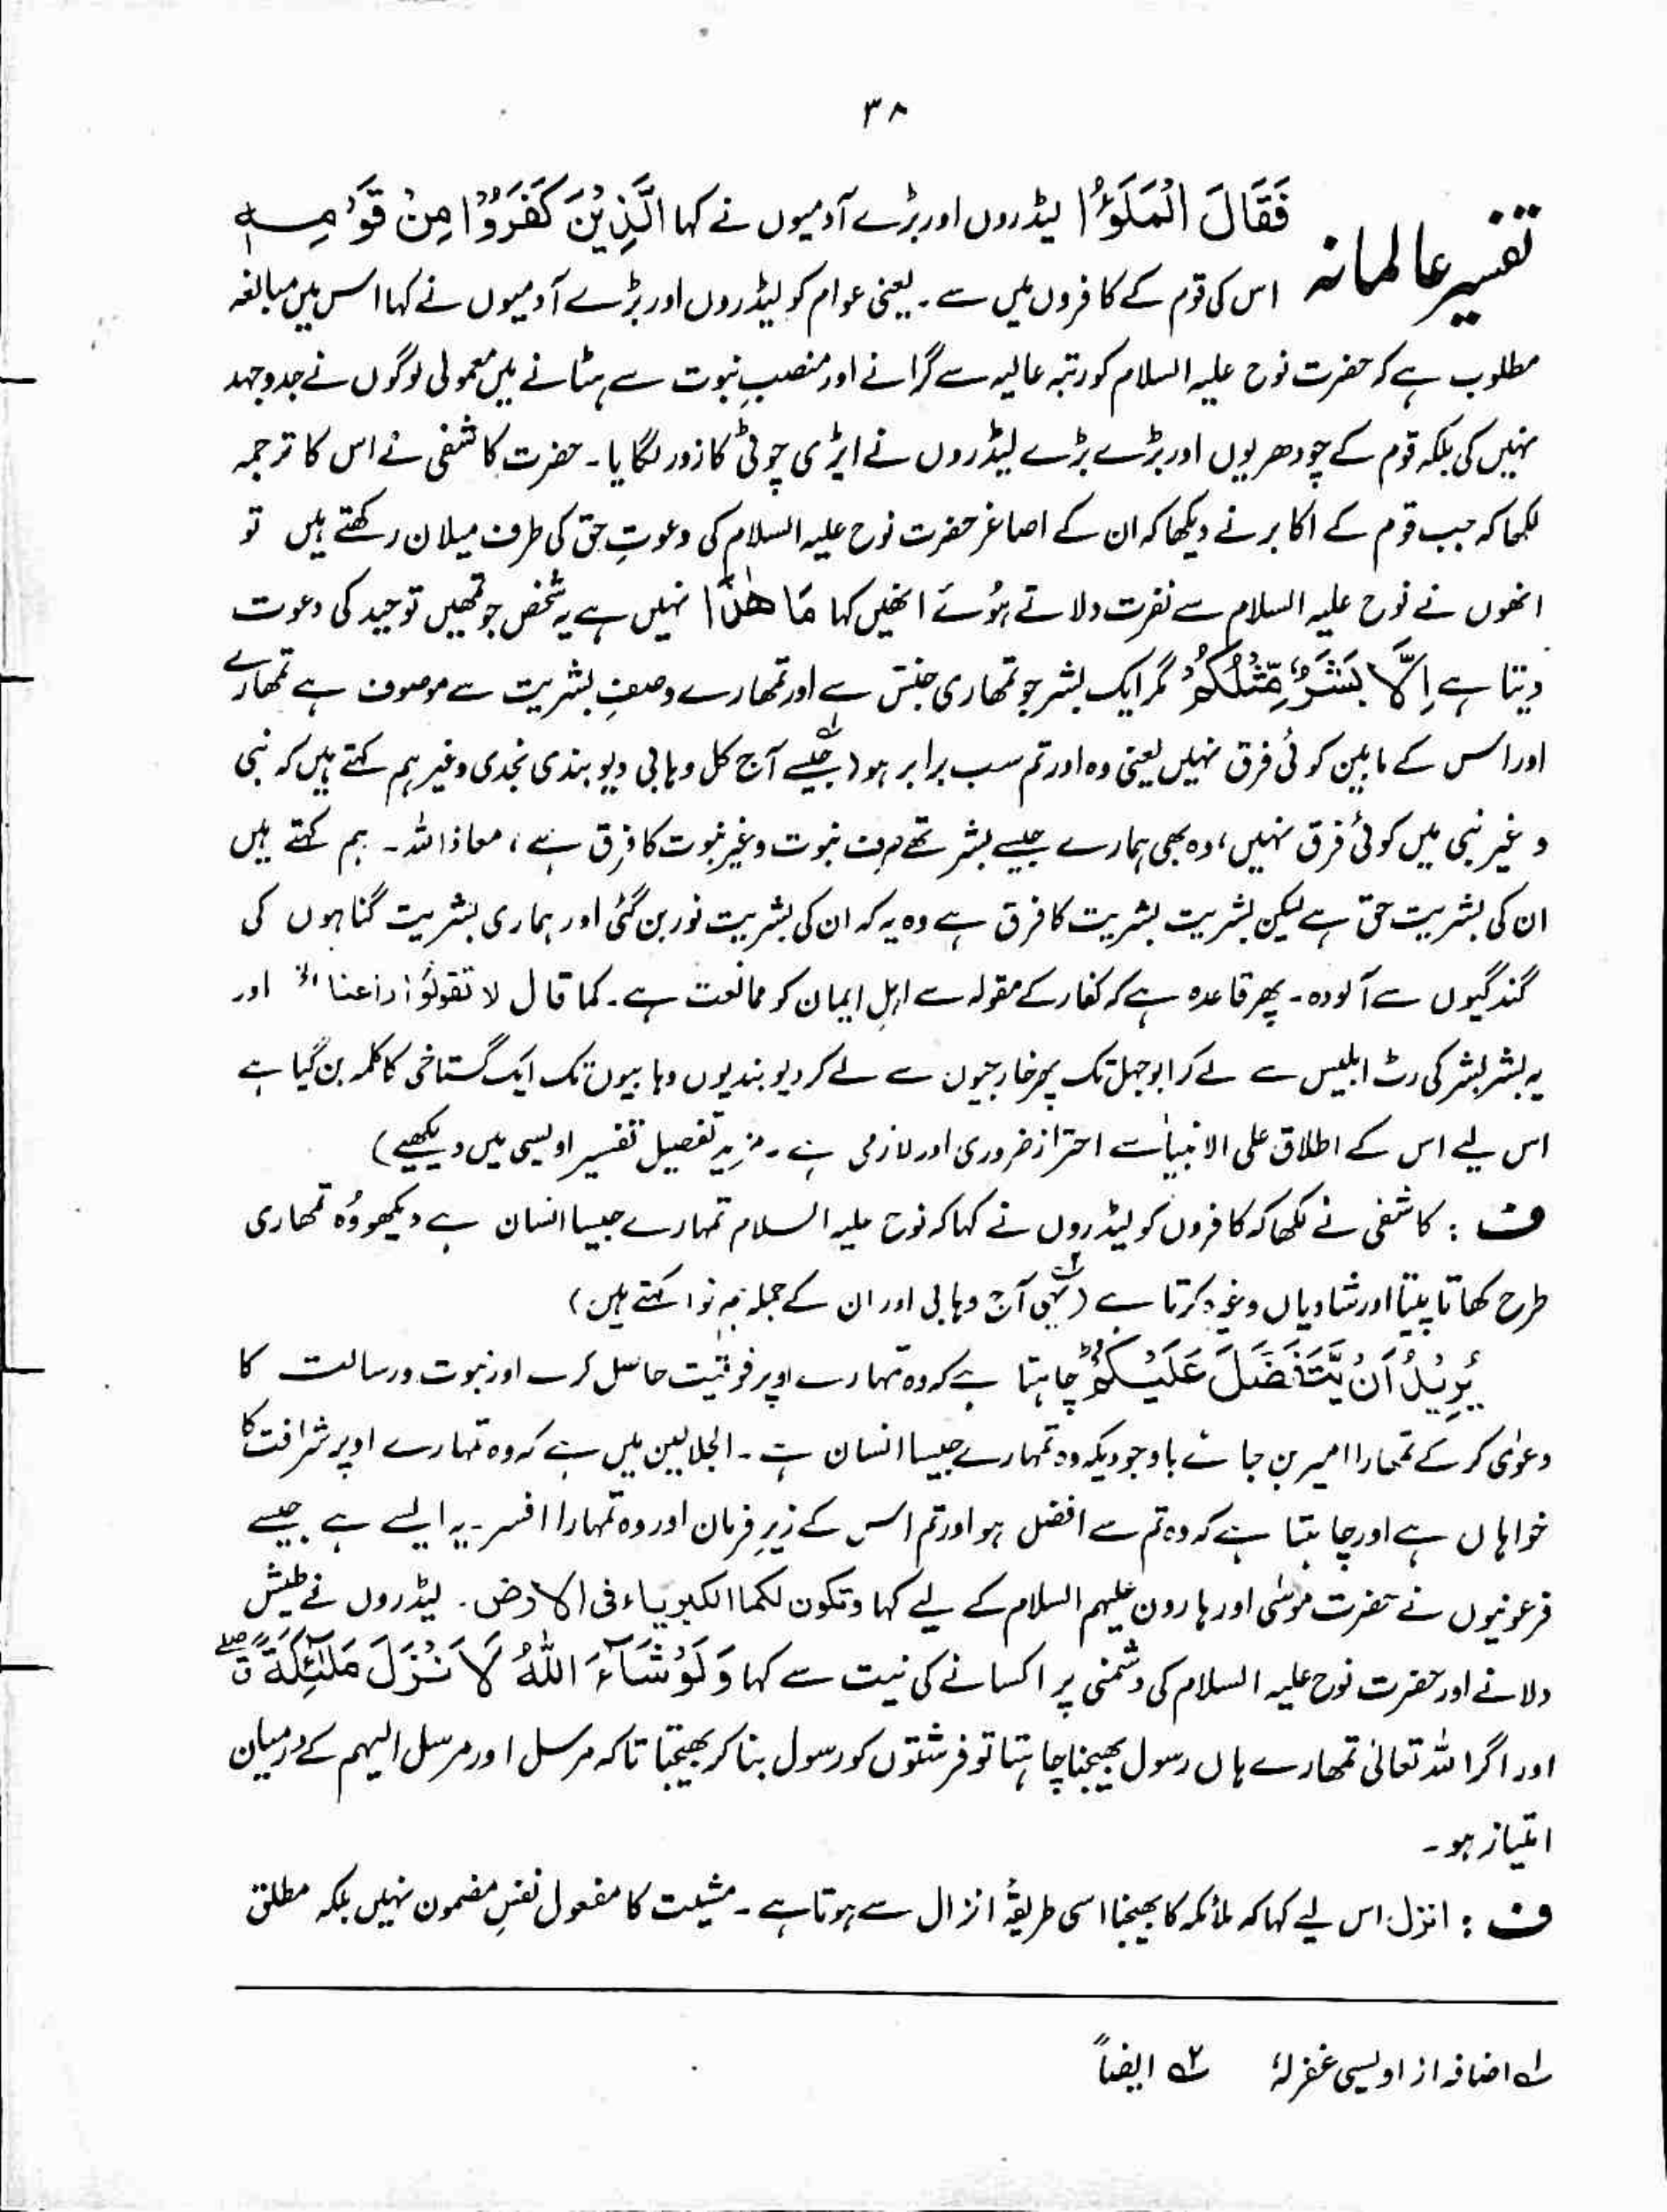 ۳۸
تفسیر عالمانہ فَقَالَ الْمَلَؤُا لیڈروں اور بڑے آدمیوں نے کہا الَّذِیْنَ كَفَرُوْا مِنْ قَوْمِهٖ
اس کی قوم کے کافروں میں سے۔ یعنی عوام کو لیڈروں اور بڑے آدمیوں نے کہا اس میں مبالغہ
مطلوب ہے کہ حضرت نوح علیہ السلام کو رتبہ عالیہ سے گرانے اور منصبِ نبوت سے ہٹانے میں معمولی لوگوں نے جدوجہد
نہیں کی بلکہ قوم کے چودھریوں اور بڑے بڑے لیڈروں نے ایڑی چوٹی کا زور لگایا۔ حضرت کاشفی نے اس کا ترجمہ
لکھا کہ جب قوم کے اکابر نے دیکھا کہ ان کے اصاغر حضرت نوح علیہ السلام کی دعوتِ حق کی طرف میلان رکھتے ہیں تو
انھوں نے نوح علیہ السلام سے نفرت دلاتے ہوئے انھیں کہا مَا هٰذَا نہیں ہے یہ شخص جو تمھیں توحید کی دعوت
دیتا ہے اِلَّا بَشَرٌ مِّثْلُكُمْ مگر ایک بشر جو تمھاری جنس سے اور تمھارے وصفِ بشریت سے موصوف ہے تمھارے
اور اس کے مابین کوئی فرق نہیں یعنی وہ اور تم سب برابر ہو (جیسے ؎۱ آج کل وہابی دیوبندی نجدی وغیرہم کہتے ہیں کہ نبی
و غیر نبی میں کوئی فرق نہیں، وہ بھی ہمارے جیسے بشر تھے صرف نبوت و غیر نبوت کا فرق ہے، معاذ اللہ۔ ہم کہتے ہیں
ان کی بشریت حق ہے لیکن بشریت بشریت کا فرق ہے وہ یہ کہ ان کی بشریت نور بن گئی اور ہماری بشریت گناہوں کی
گندگیوں سے آلودہ۔ پھر قاعدہ ہے کہ کفار کے مقولہ سے اہلِ ایمان کو ممانعت ہے۔ کما قال لا تقولوا راعنا الخ اور
یہ بشر بشر کی رٹ ابلیس سے لے کر ابوجہل تک پھر خارجیوں سے لے کر دیوبندیوں وہابیوں تک ایک گستاخی کا کلمہ بن گیا ہے
اس لیے اس کے اطلاق علی الانبیاء سے احتراز ضروری اور لازمی ہے۔ مزید تفصیل تفسیر اویسی میں دیکھیے)
ف : کاشفی نے لکھا کہ کافروں کو لیڈروں نے کہا کہ نوح علیہ السلام تمہارے جیسا انسان ہے دیکھو وُہ تمھاری
طرح کھاتا پیتا اور شادیاں وغیرہ کرتا ہے (یہی ؎۲ آج وہابی اور ان کے جملہ ہم نوا کہتے ہیں)
یُرِیْدُ اَنْ یَّتَفَضَّلَ عَلَیْكُمْ چاہتا ہے کہ وہ تمہارے اوپر فوقیت حاصل کرے اور نبوت و رسالت کا
دعوٰی کر کے تمھارا امیر بن جائے باوجودیکہ وہ تمہارے جیسا انسان ہے۔ الجلالین میں ہے کہ وہ تمہارے اوپر شرافت کا
خواہاں ہے اور چاہتا ہے کہ وہ تم سے افضل ہو اور تم اس کے زیرِ فرمان اور وہ تمہارا افسر۔ یہ ایسے ہے جیسے
فرعونیوں نے حضرت موسٰی اور ہارون علیہم السلام کے لیے کہا و تکون لکما الکبریاء فی الارض۔ لیڈروں نے طیش
دلانے اور حضرت نوح علیہ السلام کی دشمنی پر اکسانے کی نیت سے کہا وَ لَوْ شَآءَ اللّٰهُ لَاَنْزَلَ مَلٰٓئِكَةً
اور اگر اللہ تعالٰی تمھارے ہاں رسول بھیجنا چاہتا تو فرشتوں کو رسول بنا کر بھیجتا تاکہ مرسل اور مرسل الیہم کے درمیان
امتیاز ہو۔
ف : انزل اس لیے کہا کہ ملائکہ کا بھیجنا اسی طریقۂ انزال سے ہوتا ہے۔ مشیت کا مفعول نفسِ مضمون نہیں بلکہ مطلق
؎۱ اضافہ از اویسی غفرلہٗ ؎۲ ایضاً